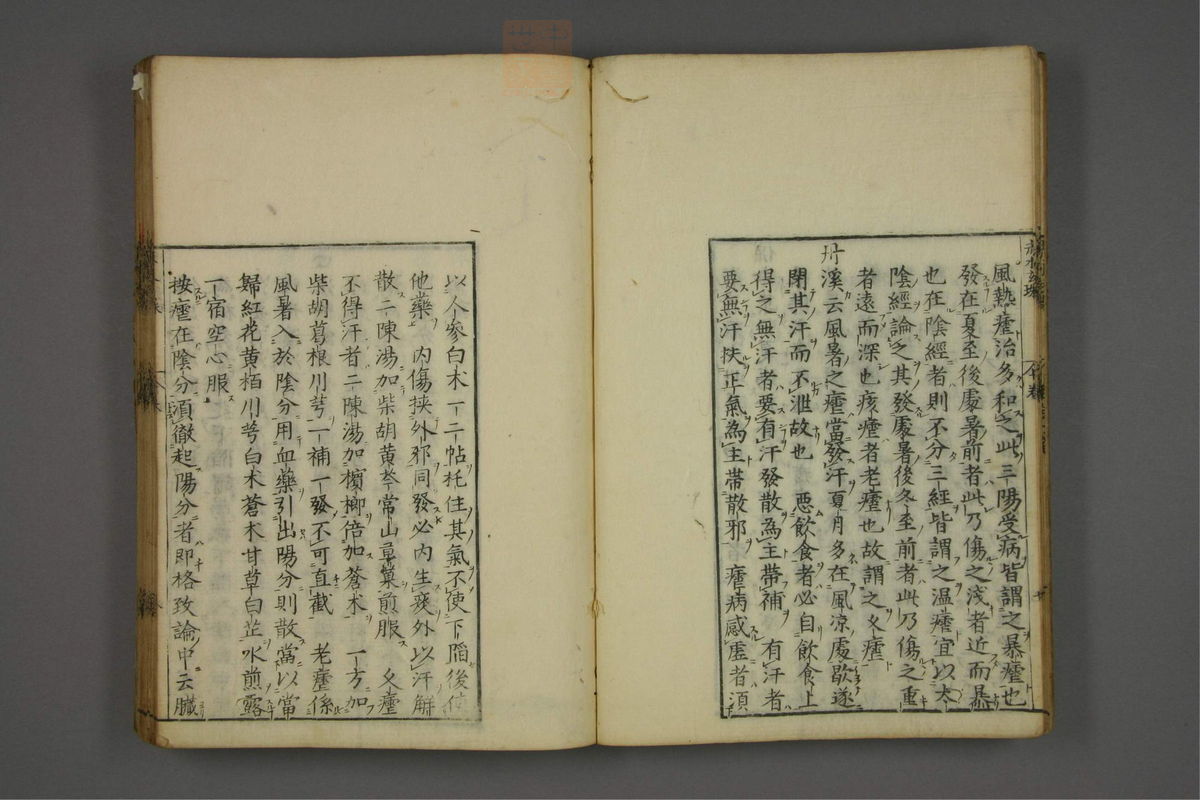 風熱瘧治多和之此三陽受病皆謂之暴瘧也
發在夏至後處暑前者此乃傷之淺者近而暴
也在陰經者則不分三經皆謂之温瘧宜以太
陰經論之其發處暑後冬至前者此乃傷之重
者遠而深也痎瘧者老瘧也故謂之久瘧
丹溪云風暑之瘧當發汗夏月多在風凉處歇遂
閉其汗而不泄故也 惡飲食者必自飲食上
得之無汗者要有汗發散為主帶補 有汗者
要無汗扶正氣為主帶散邪 瘧病感虛者須
以人參白术一二帖托住其氣不使下陷後使
他藥 內傷挾外邪同發必內生痰外以汗解
散二陳湯加柴胡黃芩常山草菓煎服 久瘧
不得汗者二陳湯加檳榔倍加蒼术 一方加
柴胡葛根川芎一補一發不可直截 老瘧係
風暑入於陰分用血藥引出陽分則散當以當
歸紅花黃栢川芎白术蒼术甘草白芷水煎露
一宿空心服
按瘧在陰分須徹起陽分者即格致論中云臟